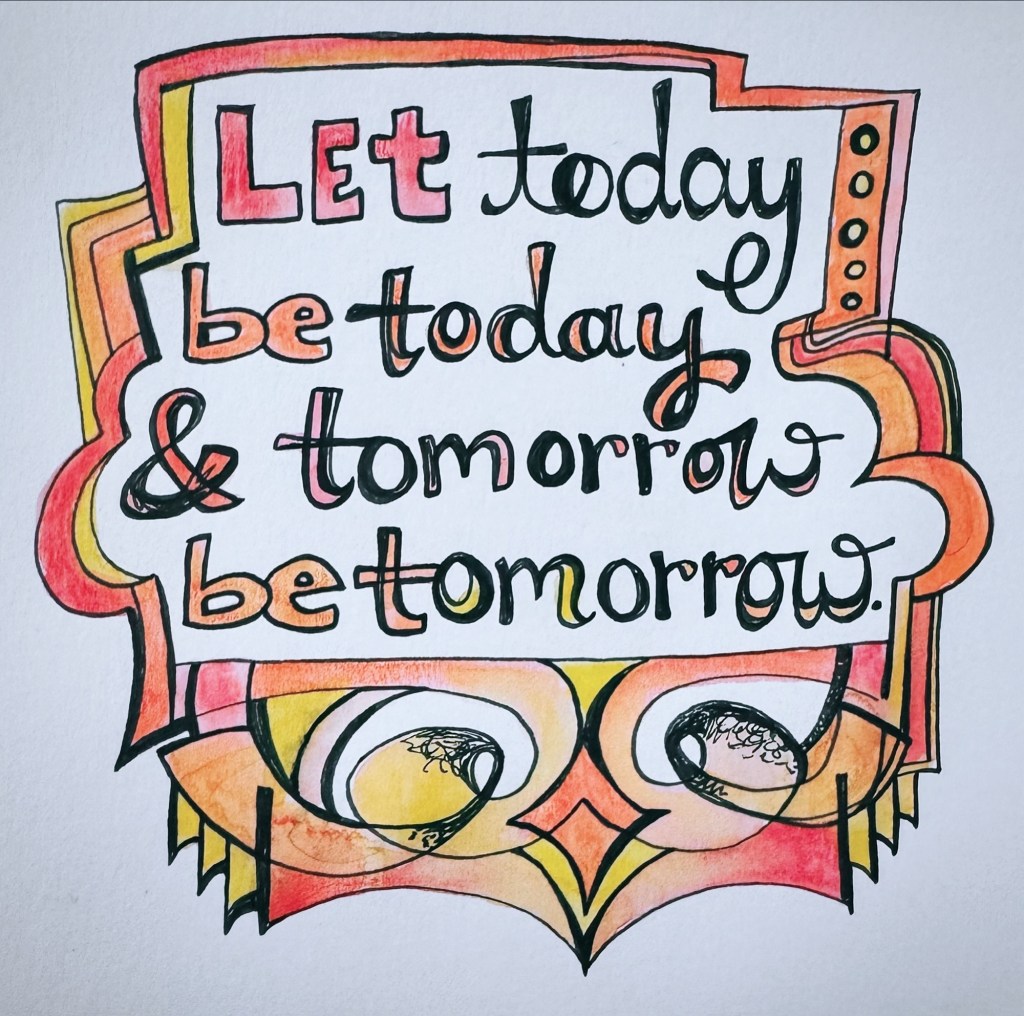 Let today
be today
& tomorrow
be tomorrow.